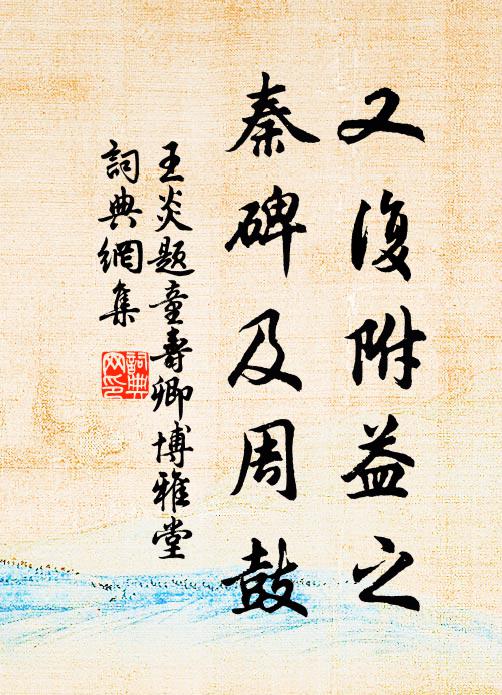 又復附益之
秦碑及周鼓
王炎題童壽卿博雅堂
詞典網集
詞典網印